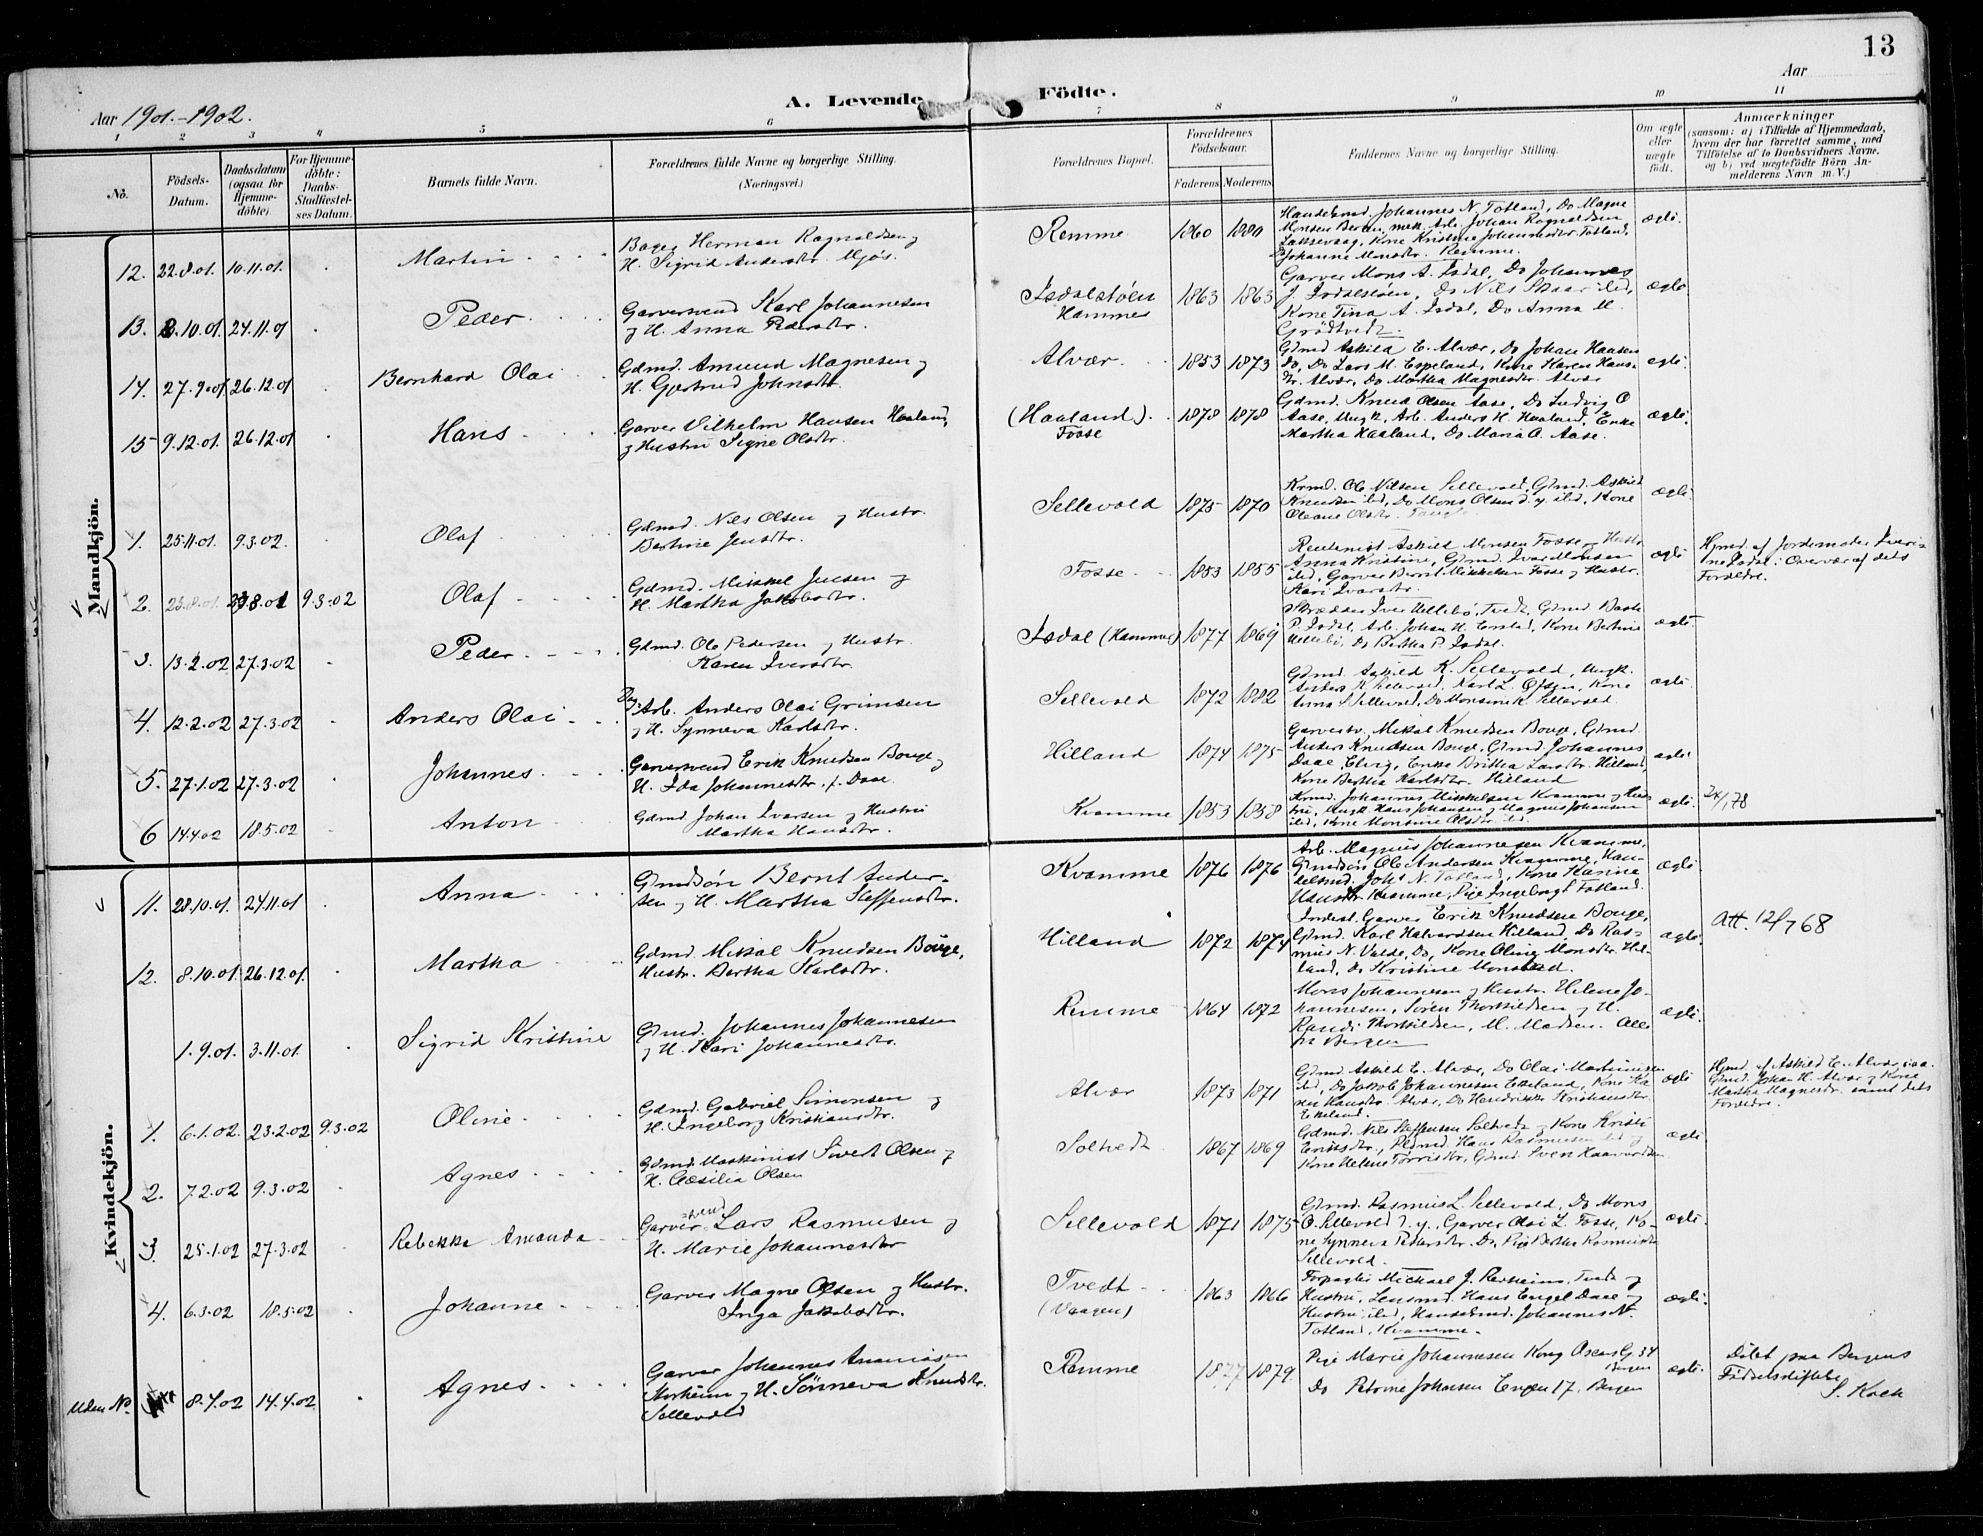 13
Aar 1901.-1902.
A. Levende Födte.
Aar
1 2 3 4 5 6 7 8 9 10 11
No.
Födsels-Datum.
Daabsdatum (ogsaa for Hjemme-döbte)
For Hjemme-döbte: Daabs-Stadfæstel-ses Datum.
Barnets fulde Navn.
Forældrenes fulde Navne og borgerlige Stilling. (Næringsvei.)
Forældrenes Bopæl.
Forældrenes Födselsaar.
Faderens Moderens
Faddernes Navne og borgerlige Stilling.
Om ægte eller uægte födt.
Anmærkninger
(saasom: a) i Tilfælde af Hjemmedaab,
hvem der har forrettet samme, med
Tilföielse af to Daabsvidners Navne.
og b) ved uægtefödte Börn An-
melderens Navn m. V.)
Mandkjön.
12. 22.8.01. 10.11.01. Martin
Bager Herman Ragnaldsen og
H. Sigrid Andersdtr. Mjøs
Remme 1860 1880
Handelsmd. Johannes N. Totland, Do Magne
Monsen Johan Ragnaldsen
Laksevaag, Kone Kristine Johannesdtr. Totland,
Do Johanne Monsdtr. Remme
ægte.
13. 8.10.01 24.11.01 Peder
Garversvend Karl Johannesen
og H. Anna Pedersdtr.
Isdalstøen Hammer 1863 1863
Garver Mons A. Isdal, Do Johannes
J. Isdalstøen, Do Nils Skaar ibd,
Kone Tina A. Isdal, Do Anna M.
ægte
14. 27.9.01 26.12.01 Bernhard Olai
Gdmd. Amund Magnesen og
H. Gjertrud Johnsdtr.
Alvær 1853 1873
Gdmd Askild E. Alvær, Do Johan Hansen
Do, Do Lars M. Espeland, Kone Karen Hans-
dtr. Alvær, Do Martha Magnesdtr. Alvær
ægte.
15 9.12.01. 26.12.01 Hans
Garver Vilhelm Hansen Haaland,
og Hustru Signe Olsdtr.
(Haaland). Fosse 1878 1878
Gdmd. Knud Olsen Aase, Do Ludvig O
Aase, Ungk. Arb. Anders H. Haaland, Enke
Martha Haaland, Do Maria O. Aase.
ægte.
1. 25.11.01. 9.3.02. Olaf
Gdmd. Nils Olsen og Hustr.
Bertine Jensdtr.
Sellevold 1875 1870
Krmd. Ole Nilsen Sellevold, Gdmd. Askild
Knudsen ibd, Do Mons Olsen d. y. ibd, Kone
Oleane Olsdtr.
ægte
2. 23.8.01. 23.8.01 9.3.02 Olaf
Gdmd. Mikkel Jensen og
H. Martha Jakobsdtr.
Fosse 1853 1855
Rentenist Askild Monsen Fosse og Hustr.
Anna Kristine, Gdmd. Ivar Monsen
ibd, Garver Bernt Mikkelsen Fosse og Hustr.
Kari Ivarsdtr.
ægte
Hjmd. af Jordemoder Iveri-
ne Isdal i Overvær af dets
Forældre.
3. 13.2.02 27.3.02 Peder
Gdmd. Ole Pedersen og Hustr.
Karen Iversdtr.
Isdal (Hammer) 1877 1869
Skrædder Iver Ullebø, Tvedt, Gdmd.
P. Isdal, Arb. Johan H. Erstad, Kone Bertine
Ullebø, Do Bertha P. Isdal.
ægte
4. 12.2.02 27.3.02 Anders Olai
Dag Arb. Anders Olai Grimsen
og H. Synneva Karlsdtr.
Sellevold 1872 1882
Gdmd Askild K. Sellevold, Ungk.
Anders K. Sellevold, Karl L. Ofsen, Kone
Anna S. Sellevold, Do Monsine K. Sellevold.
ægte.
5. 27.1.02 27.3.02 Johannes
Garversvend Erik Knudsen Bouge og
H. Ida Johannesdtr. f. Daae
Hilland 1874 1875
Garversv. Mikal Knudsen Bouge, Gdmd.
Anders Knudsen Bouge, Gdmd. Johannes
Daae, Elvig, Enke Britha Larsdtr. Hilland,
Kone Bertha Karlsdtr. Hilland
ægte.
6 14.4.02 18.5.02 Anton
Gdmd Johan Ivarsen og Hustru
Martha Hansdtr.
Kvamme 1853 1858
Krmd. Johannes Mikkelsen Kvamme og Hus-
tru, Ungk. Hans Johansen og Magnus Johansen
ibd, Kone Monsine Olsdtr. ibd.
ægte.
Kvindekjön.
11. 28.10.01. 24.11.01 Anna
Gmdsön Bernt Ander-
sen og H. Martha Steffensdtr.
Kvamme 1876 1876
Arb. Magnus Johannesen Kvamme,
Gmdsön Ole Andersen Kvamme, Han-
delsmd. Johs N. Totland, Kone Karine
Hansdtr. Kvamme, Pige Ingeborg Totland.
ægte
12. 8.10.01 26.12.01. Martha
Gdmd. Mikal Knudsen Bouge,
Hustr. Bertha Karlsdtr.
Hilland 1872 1874
Indst. Garver Erik Knudsen Bouge,
Gdmd. Karl Halvardsen Hilland, Do Ras-
mus N. Valde, Do, Kone Oline Monsdtr. Hil-
land, Do Kristine Monstad.
ægte.
Att. 12/7 68
1.9.01. 3.11.01. Sigrid Kristine
Gdmd. Johannes Johannesen
og H. Kari Johannesdtr.
Remme 1864 1872
Mons Johannesen og Hustr. Helene Jo-
hannesen, Sören Thorkildsen og H.
Randi Thorkildsen, M. Madsen. Alle
fra Bergen
ægte.
1. 6.1.02. 23.2.02 9.3.02 Oline
Gdmd. Gabriel Simonsen og
H. Ingeborg Kristiansdtr.
Alvær 1873 1871
Gdmd Askild E. Alvær, Do Olai Martinussen
ibd, Do Jakob Johannesen Eikeland, Kone Ka-
ren Hansdtr. Alvær, Do Hendrikke Kristiansdtr.
Eikeland.
ægte
Hjmd. af Askild E. Alvær, paa.
Gdmd. Johan H. Alvær og Kone
Martha Magnesdtr. samt dets
Forældre.
2. 7.2.02 9.3.02 Agnes
Gdmd. Maskinist Sivert Olsen og
H. Cæsilia Olsen
Soltvedt 1867 1869
Gdmd. Nils Steffensen Soltvedt og Kone Kristi
Eriksdtr., Plsmd. Hans Rasmussen ibd og
Kone Helene Torrisdtr., Gdmd. Sven Haavardsen
ægte
3. 25.1.02 27.3.02 Rebekka Amanda
Garver-svend Lars Rasmusen og
H. Marie Johannesdtr
Sellevold 1871 1875
Gdmd. Rasmus L. Sellevold, Do Mons
O. Sellevold d. y., Garver Olai L. Fosse, Ko-
ne Synneva Pedersdtr. Do, Pige Bertha Rasmusdtr
Sellevold.
ægte.
4. 6.3.02 18.5.02 Johanne
Garver Magne Olsen og Hustr.
Inga Jakobsdtr.
Tvedt (Vaagen) 1863 1866
Forpagter Michael J. Rexheim, Tvedt og
Hustru, Lensmd. Hans Engel Daae og
Hustru ibd, Handelsmd. Johannes N.
Totland, Kvamme.
ægte.
Uden No. 8.4.02 14.4.02. Agnes
Garver Johannes Ananiasen
Storheim og H. Sönneva Knudsdtr.
Sellevold
Remme 1877 1879.
Pige Marie Johannesen Kong Oscars G. 34
Bergen
Do Petrine Johansen Engen 17, Bergen
ægte.
Döbt paa Bergens
Födselsstiftelse
S. Koch